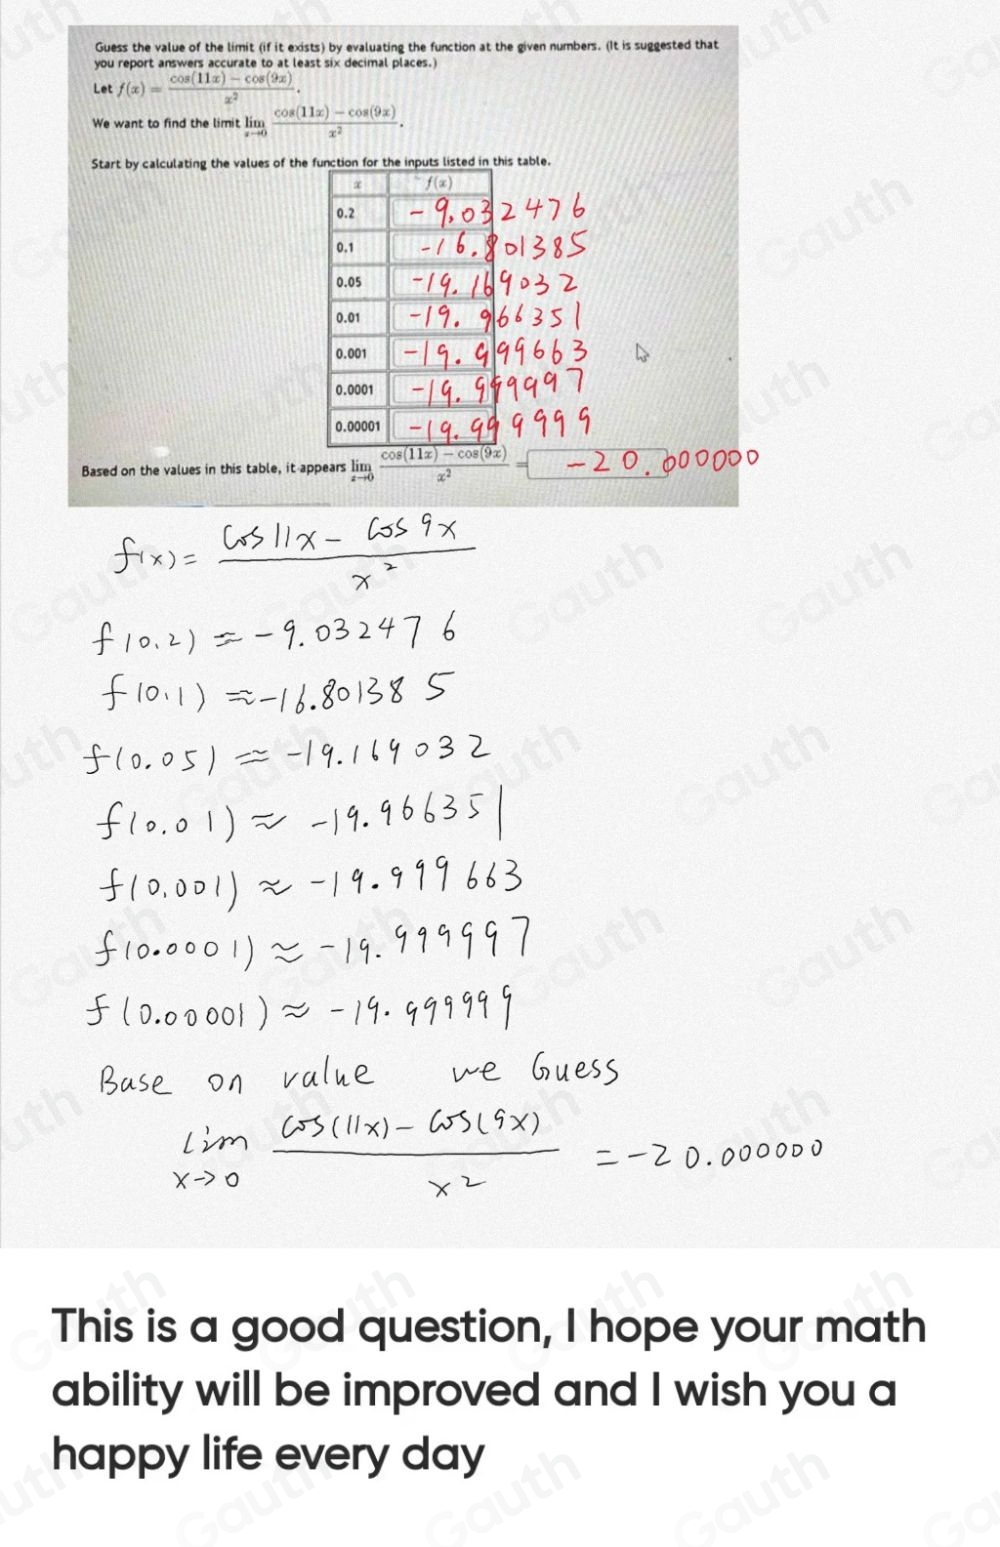 Guess the value of the limit (if it exists) by evaluating the function at the given numbers. (It is suggested that
you report answers accurate to at least six decimal places.)
Let f(x) = cos(11x) − cos(9x) / x².
We want to find the limit lim x→0 cos(11x) − cos(9x) / x².
Start by calculating the values of the function for the inputs listed in this table.
x f(x)
0.2 -9.032476
0.1 -16.801385
0.05 -19.169032
0.01 -19.966351
0.001 -19.999663
0.0001 -19.999997
0.00001 -19.999999
Based on the values in this table, it appears lim x→0 cos(11x) − cos(9x) / x² = -20.000000
f(x) = cos 11x - cos 9x / x²
f(0.2) ≈ -9.032476
f(0.1) ≈ -16.801385
f(0.05) ≈ -19.169032
f(0.01) ≈ -19.966351
f(0.001) ≈ -19.999663
f(0.0001) ≈ -19.999997
f(0.00001) ≈ -19.999999
Base on value we Guess
lim x→0 cos(11x) - cos(9x) / x² = -20.000000
This is a good question, I hope your math
ability will be improved and I wish you a
happy life every day